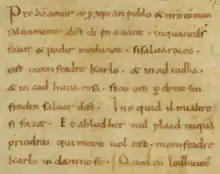 Pro dõ amur & p xp̃ian poblo & nr̃o cõmun
saluament. dist di in auant. inquantds
sauir & podir medunat. sisaluaraieo.
cist meon fradre karlo. & in ad iudha.
& in cad huna cosa. sicũ om p dreit son
fradra saluar dist. Ino quid il mialtre
si fazet. Et abludher nul plaid nũquã
prindrai qui meon uol cist. meon fradre
karle in damno sit.